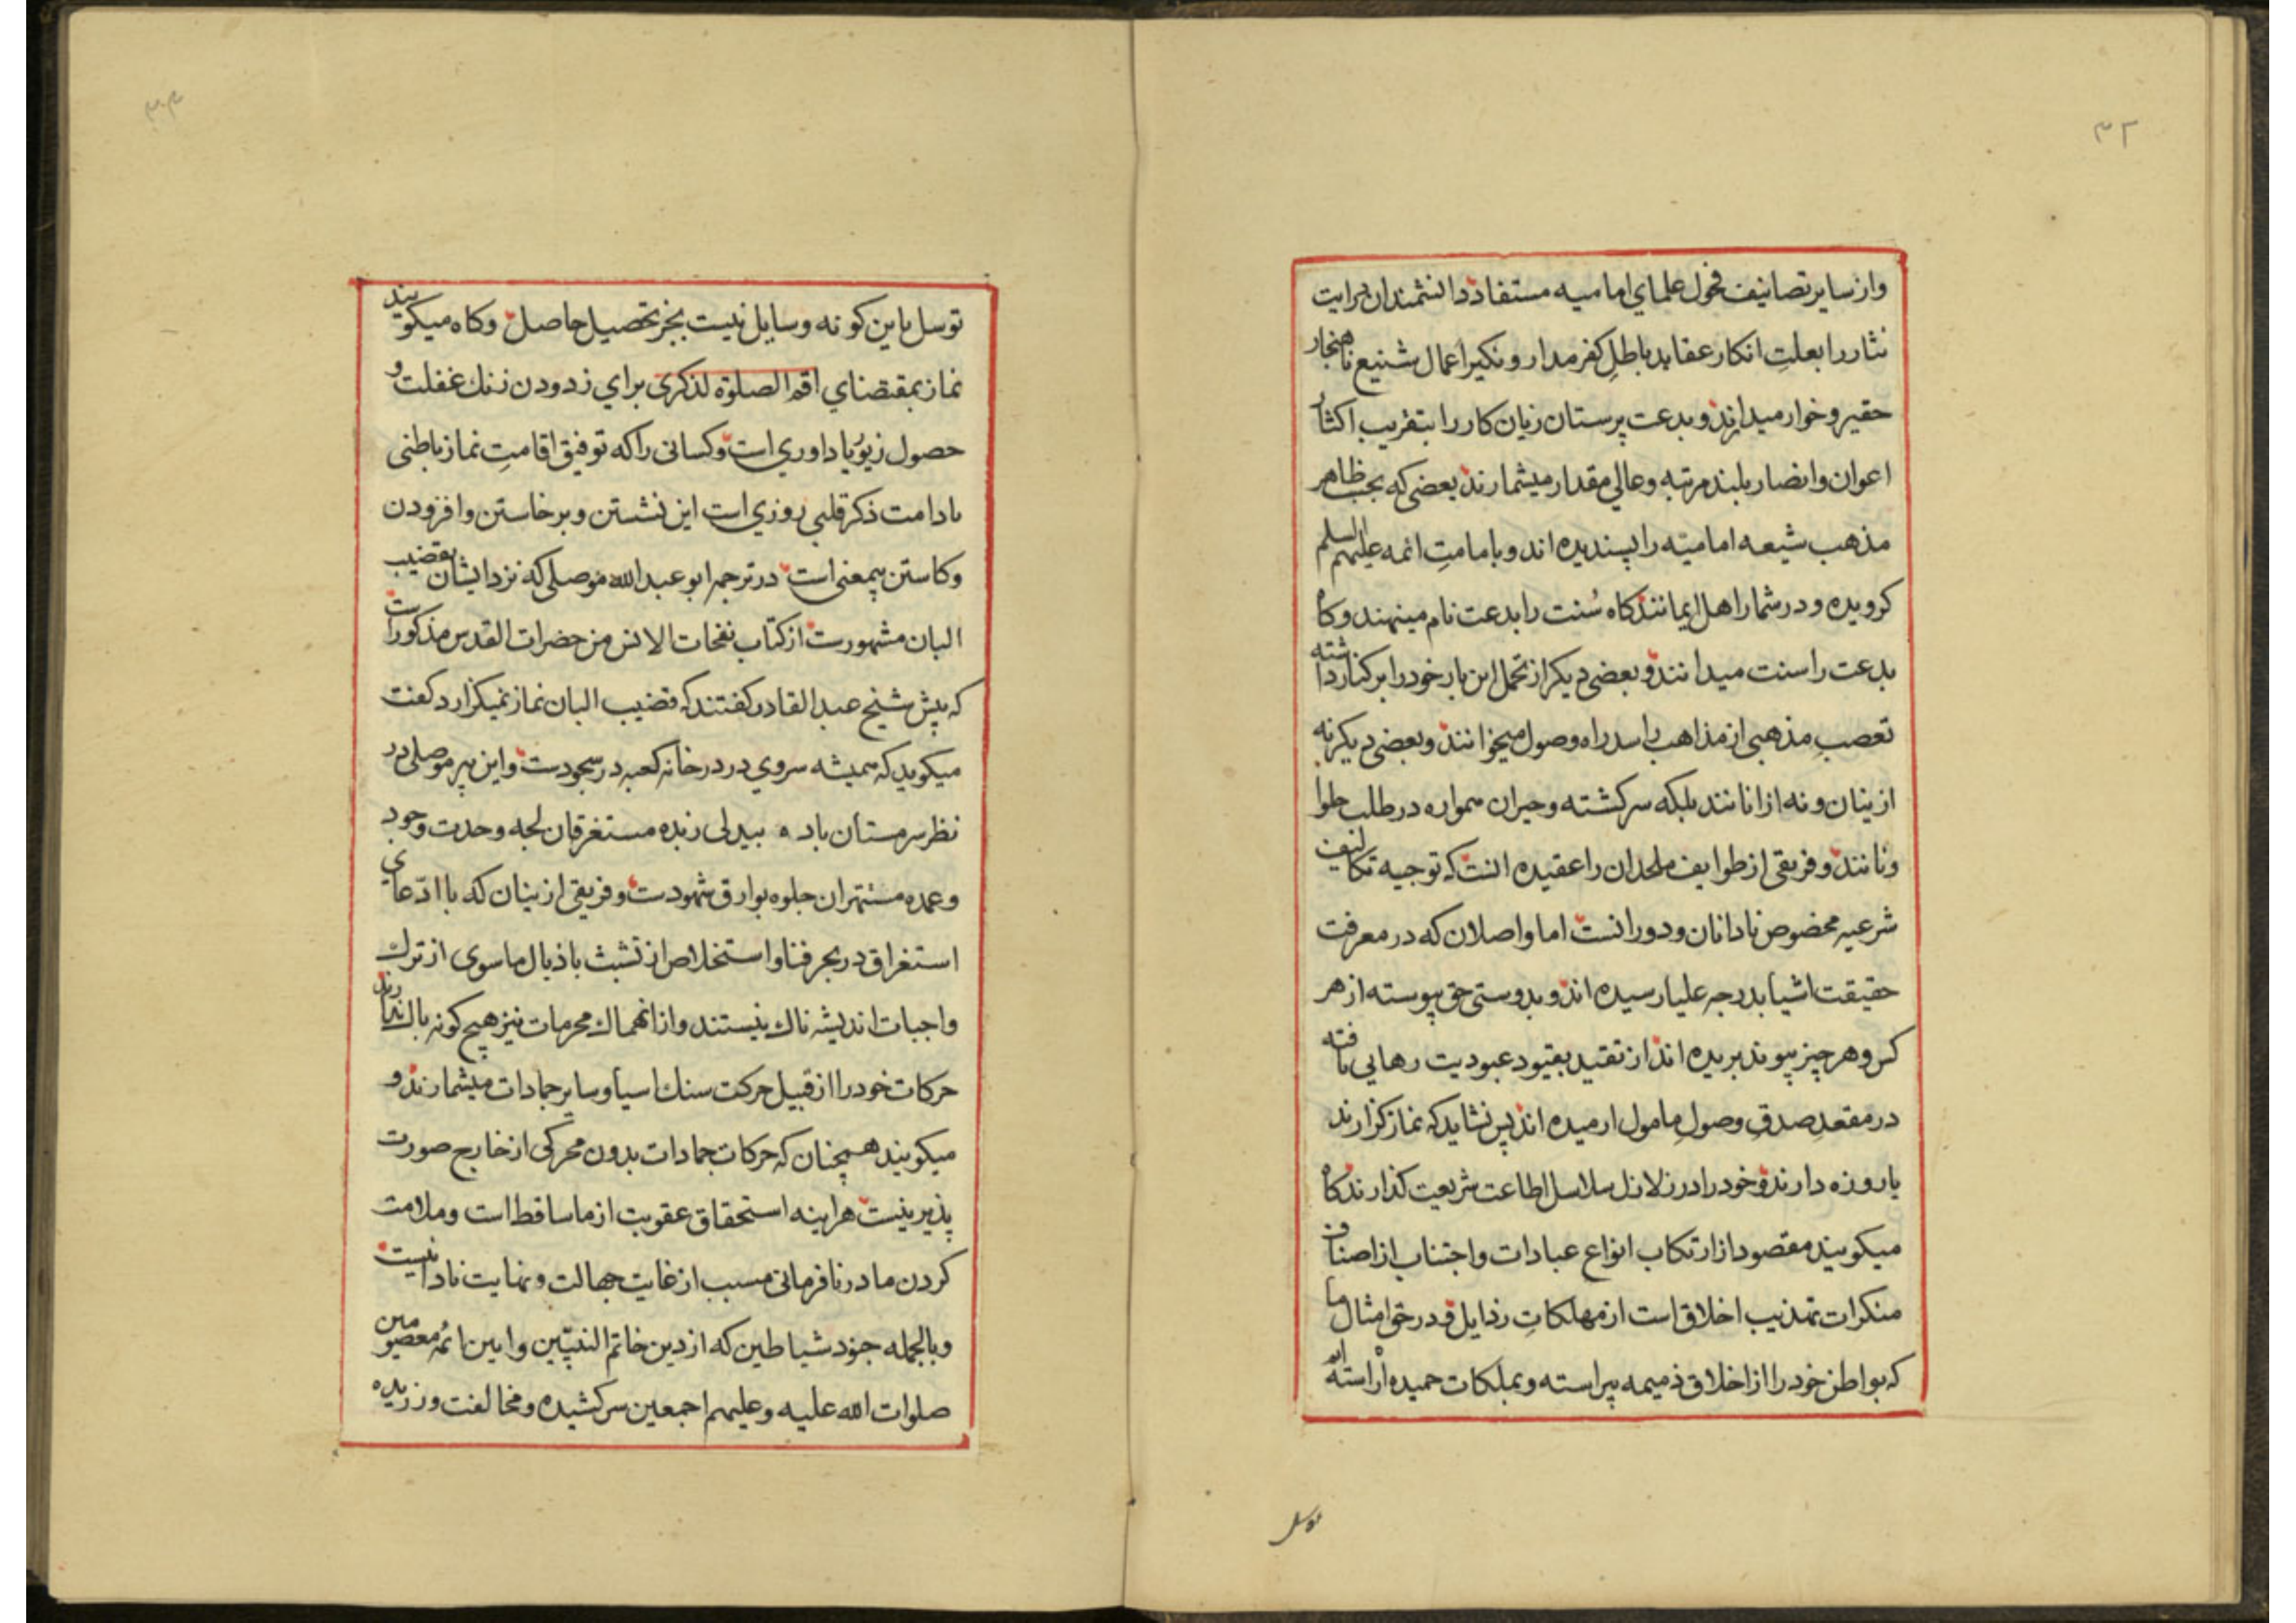 ۳۲
وازسایر تصانیف فحول علمای امامیه مستفاد دانشمندان درایت
نثار را بعلتِ انکار عقاید باطلِ کفرمدار و نکیر اعمال شنیع ناهنجار
حقیر و خوار میدارند و بدعت پرستان زیان کار را بتقریب اکثار
اعوان و انصار بلند مرتبه و عالی مقدار میشمارند بعضی که بحسب ظاهر
مذهب شیعه امامیّه را پسندیده اند و بامامتِ ائمه علیهم السلم
کرویده و در شمار اهل ایمانند کاه سُنت را بدعت نام مینهند و کاه
بدعت را سنت میدانند و بعضی دیکر از تحمل این بار خود را بر کنار داشته
تعصبِ مذهبی از مذاهب را سد راه وصول میخوانند و بعضی دیکر نه
ازینان و نه از انانند بلکه سرکشته و حیران همواره در طلب حلوا
ونانند و فریقی از طوایف ملحدان را عقیده انست که توجیه تکالیف
شرعیه مخصوص نادانان و دورانست اما واصلان که در معرفت
حقیقت اشیا بدرجه علیا رسیده اند و بدوستی حق پیوسته از هر
کس و هر چیز پیوند بریده اند از تقید بقیود عبودیت رهایی یافته
در مقعدِ صدقِ وصولِ مامول ارمیده اند پس نشاید که نماز کزارند
یا روزه دارند و خود را در زلازل سلاسل اطاعت شریعت کذارند کاه
میکویند مقصود از ارتکاب انواع عبادات و اجتناب از اصناف
منکرات تهذیب اخلاق است از مهلکاتِ رذایل و در حق امثال ما
که بواطن خود را از اخلاق ذمیمه پیراسته و بملکات حمیده اراسته ایم
توسل
توسل باین کونه وسایل نیست بجز تحصیل حاصل و کاه میکویند
نماز بمقتضای اقم الصلوة لذکری برای زدودن زنك غفلت و
حصول زیور یاداوری است و کسانی را که توفیق اقامتِ نماز باطنی
بادامت ذکر قلبی روزی است این نشستن و برخاستن و افزودن
و کاستن بیمعنی است در ترجمه ابو عبدالله موصلی که نزد ایشان بقضیب
البان مشهورست از کتاب نفحات الانس من حضرات القدس مذکورست
که پیش شیخ عبدالقادر کفتند که قضیب البان نماز نمیکزارد کفت
میکویید که همیشه سروی در در خانه کعبه در سجودست و این پیر موصلی در
نظر سرمستان باده بیدلی زبده مستغرقان لجه وحدت وجود
وعمده مستهتران جلوه بوارق شهودست و فریقی ازینان که با ادّعای
استغراق در بحر فنا و استخلاص از تشبث باذیال ماسوی از ترك
واجبات اندیشه ناك نیستند و از انهماك محرمات نیز هیچ کونه باك ندارند
حرکات خود را از قبیل حرکت سنك اسیا و سایر جمادات میشمارند و
میکویند همچنان که حرکات جمادات بدون محرکی از خارج صورت
پذیر نیست هراینه استحقاق عقوبت از ما ساقط است و ملامت
کردن ما در نافرمانی مسبب از غایت جهالت و نهایت نادانیست
وبالجمله جنود شیاطین که از دین خاتم النبیّین و ایین ائمه معصومین
صلوات الله علیه و علیهم اجمعین سرکشیده و مخالفت ورزیده